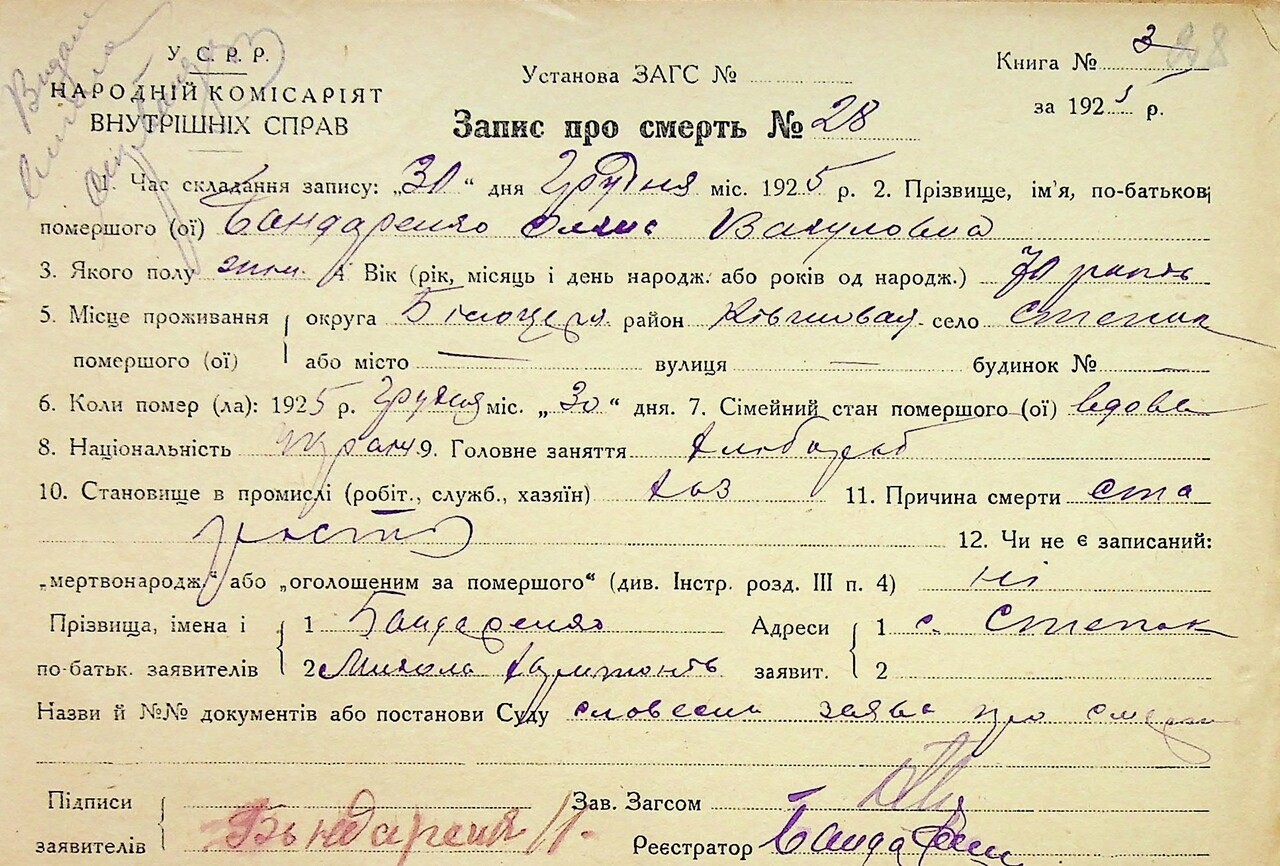 У. С. Р. Р.
НАРОДНІЙ КОМІСАРІЯТ
ВНУТРІШНІХ СПРАВ
Установа ЗАГС №
Запис про смерть № 28
Книга № 3 28
за 1925 р.
1. Час складання запису: „30“ дня Грудня міс. 1925 р. 2. Прізвище, ім'я, по-батькові
помершого (ої) Бандаренко Вакуловна
3. Якого полу жін. 4. Вік (рік, місяць і день народж. або років од народж.) 70
5. Місце проживання округа Білоцерк. район село Степок
помершого (ої) або місто — вулиця — будинок № —
6. Коли помер (ла): 1925 р. Грудня міс. „30“ дня. 7. Сімейний стан помершого (ої) вдова
8. Національність 9. Головне заняття хлібороб
10. Становище в промислі (робіт., служб., хазяїн) хаз 11. Причина смерти ста
рость 12. Чи не є записаний:
„мертвонародж.“ або „оголошеним за помершого“ (див. Інстр. розд. III п. 4) ні
Прізвища, імена і 1 Бандаренко Адреси 1 с. Степок
по-батьк. заявителів 2 Микола заявит. 2
Назви й №№ документів або постанови Суду словесна заява про смерть
Підписи Зав. Загсом
заявителів Реєстратор